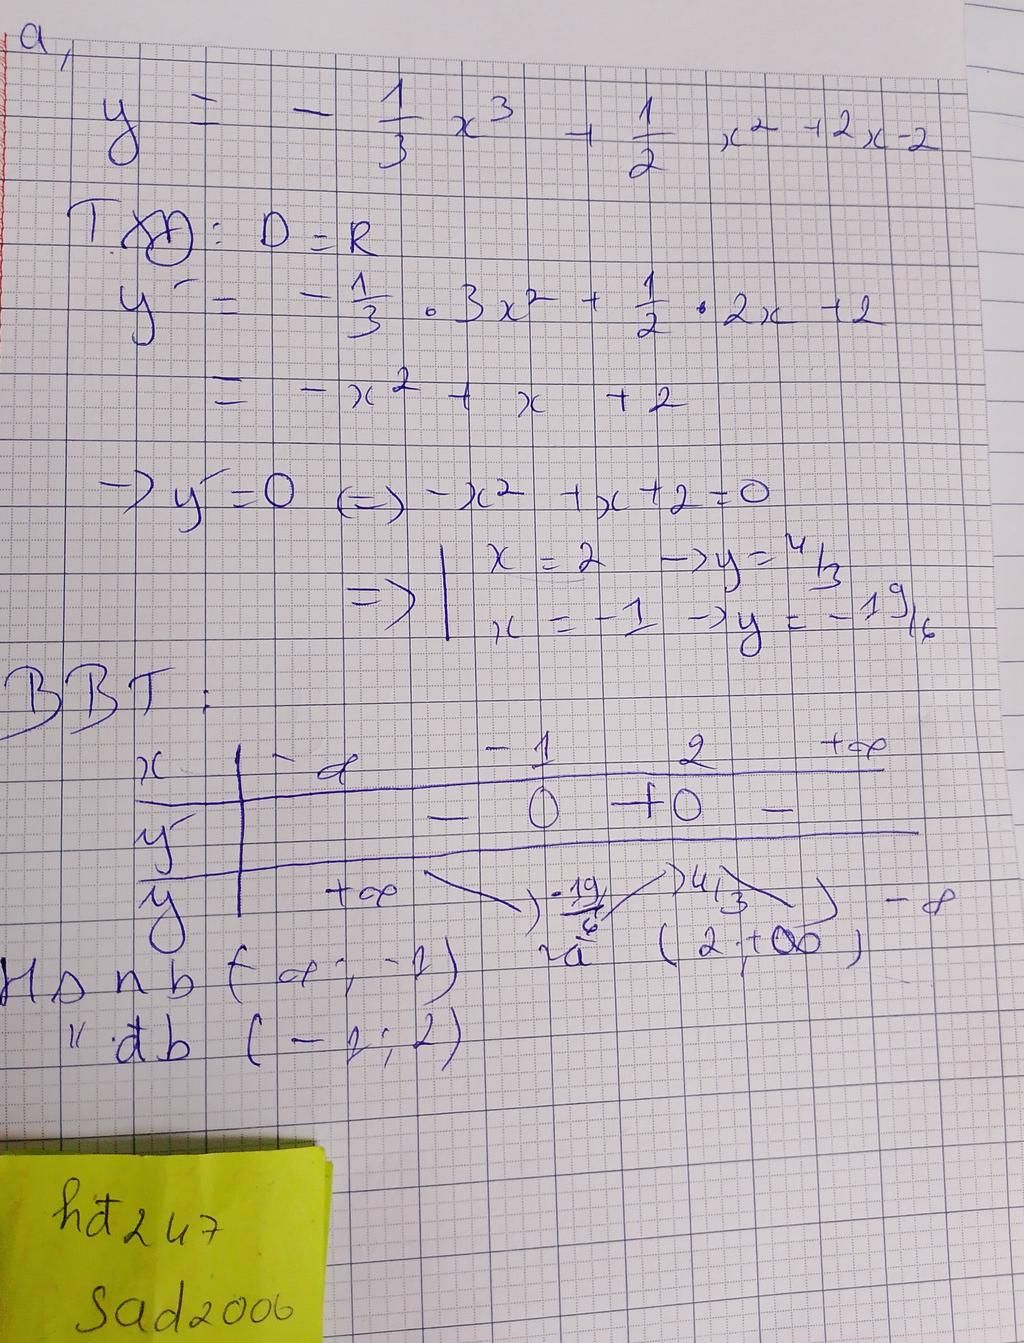 a,
y = - 1/3 x³ + 1/2 x² + 2x - 2
TXĐ: D = R
y' = - 1/3 . 3x² + 1/2 . 2x + 2
= - x² + x + 2
-> y' = 0 <=> -x² + x + 2 = 0
=> | x = 2 -> y = 4/3
x = -1 -> y = -19/6
BBT:
x -∞ -1 2 +∞
y' - 0 + 0 -
y +∞ -19/6 4/3 -∞
HS nb (-∞; -1) và (2; +∞)
" đb (-1; 2)
hđ247
sad2006